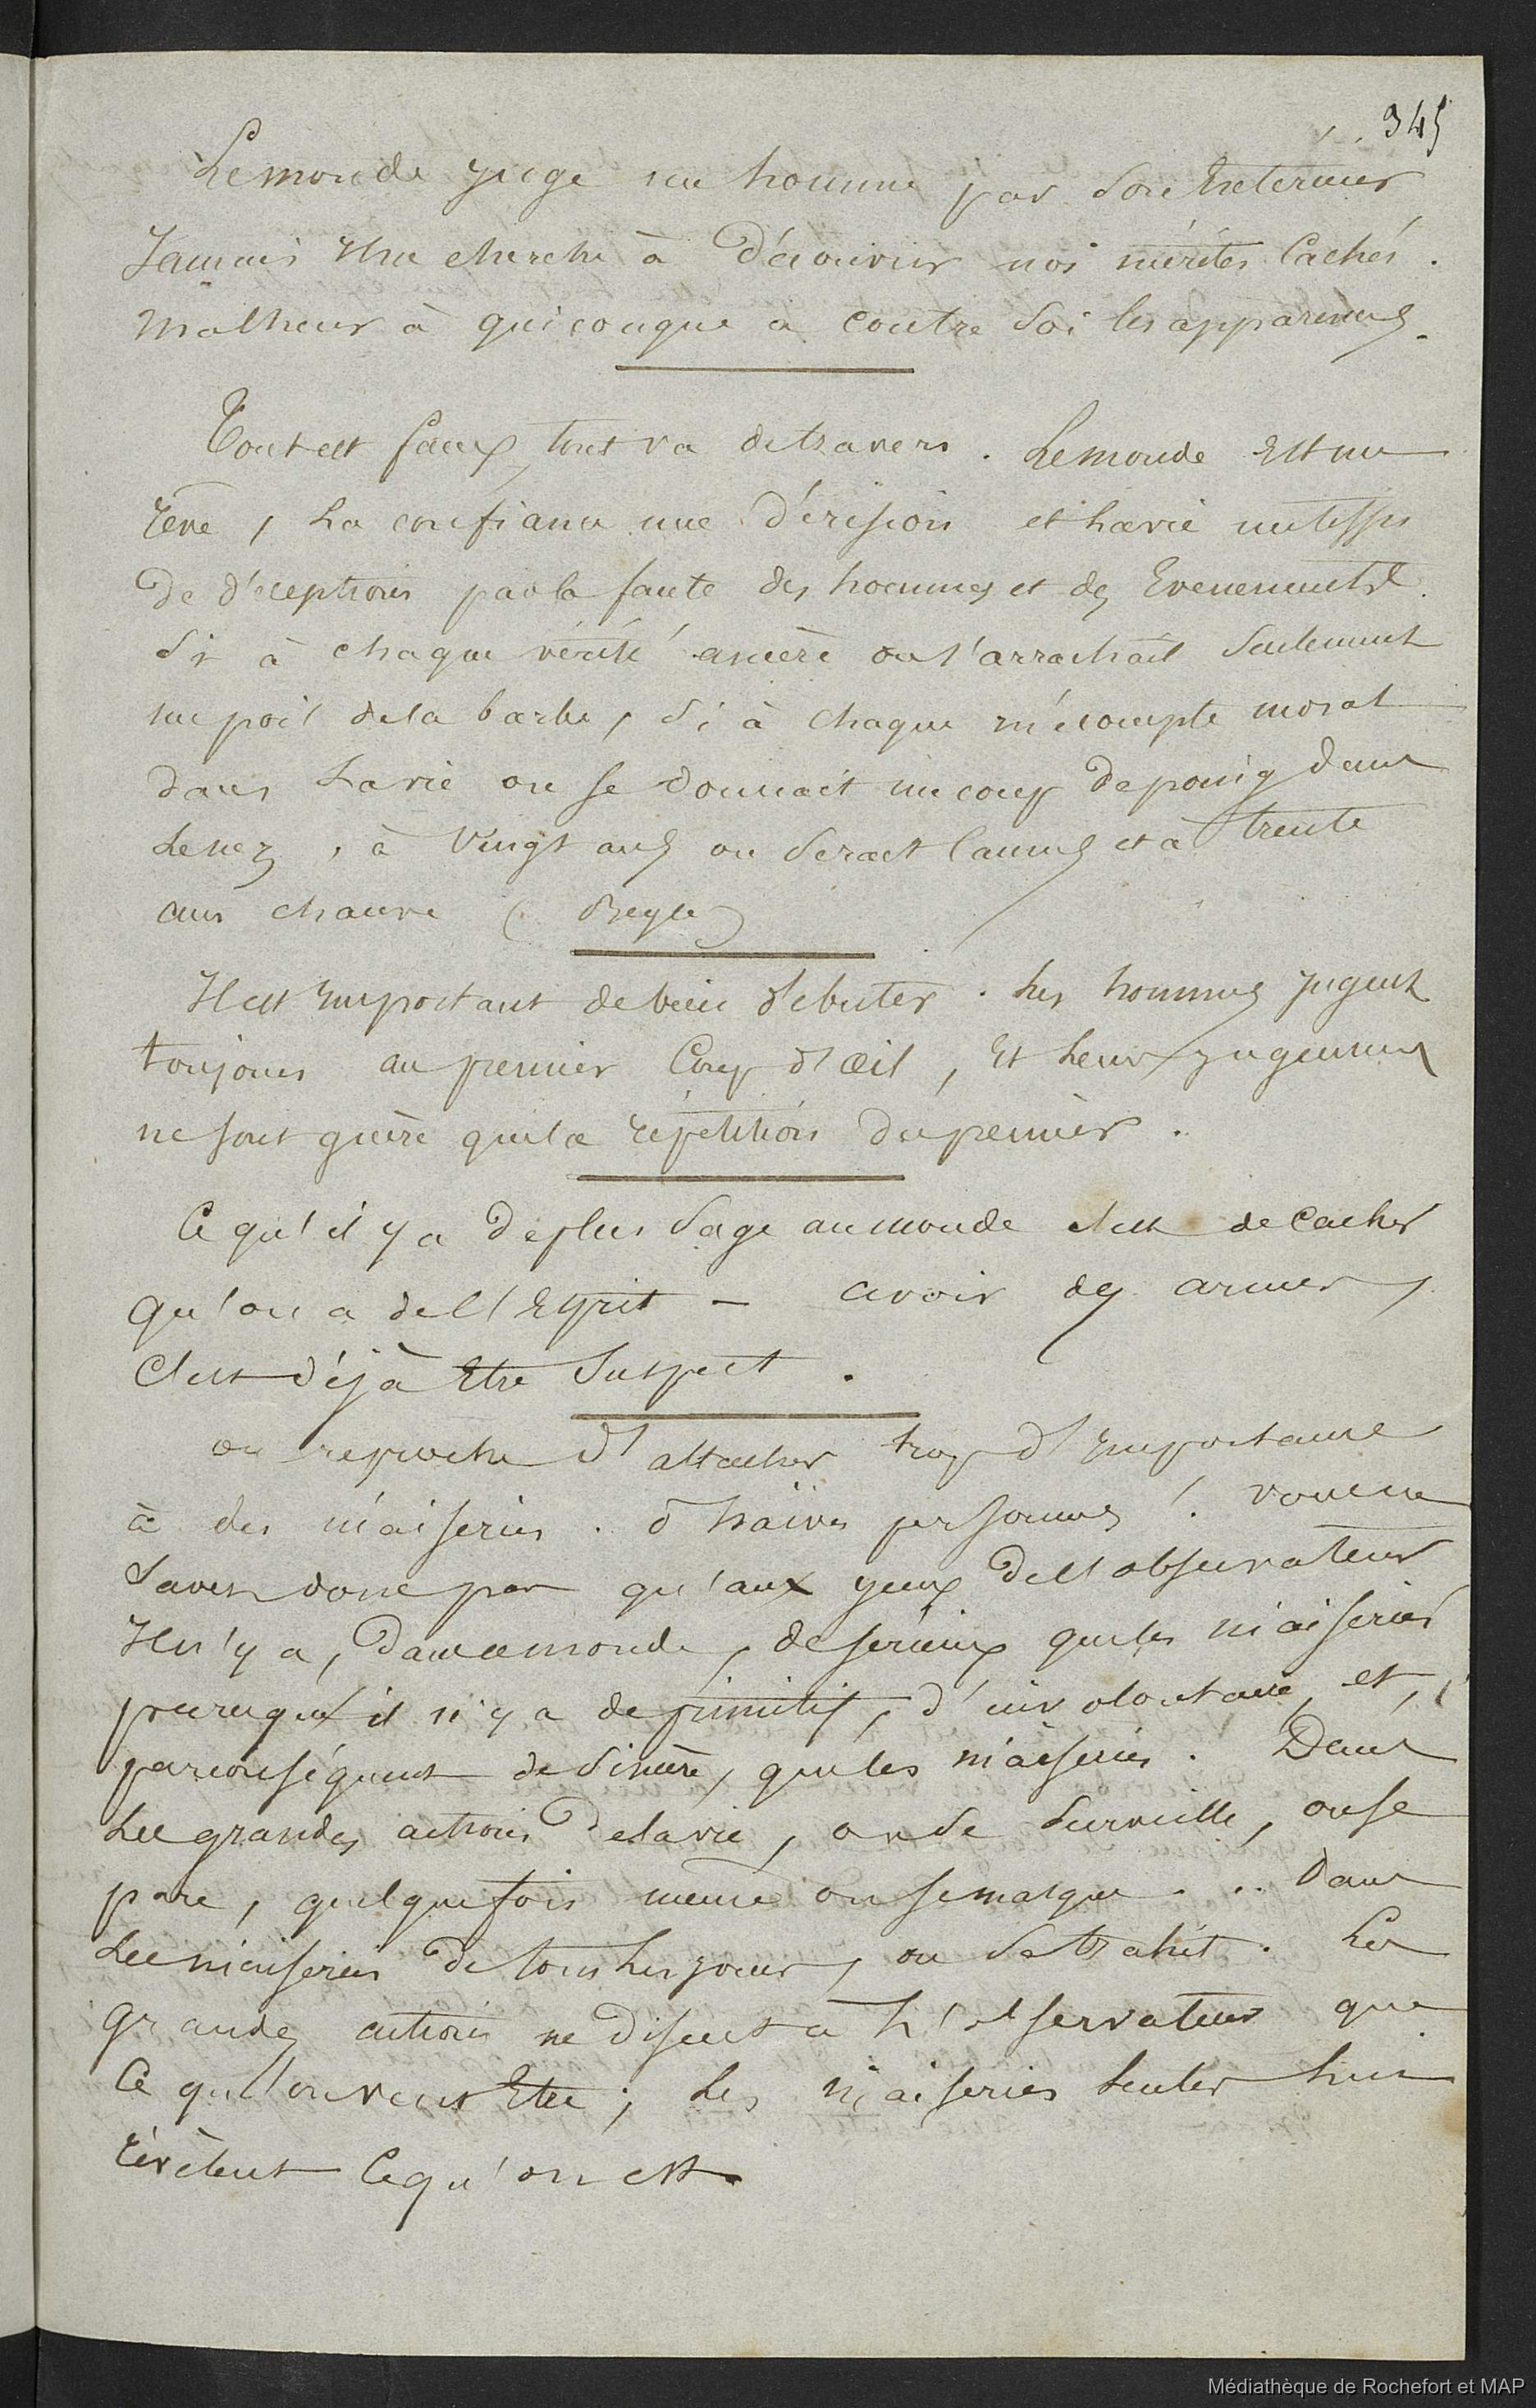 345
Le monde juge un homme par son Exterieur
Jamais Il ne cherche à découvrir nos mérites Cachés.
Malheur à quiconque a contre Soi les apparences.
Tout est faux, tout va de travers. Le monde Est un
rêve, La confiance une dérision et La vie un tissu
De déceptions par la faute des hommes et des Evenements.
Si à chaque vérité amère on s'arrachait Seulement
un poil de la barbe, Si à chaque mécompte moral
dans La vie on se donnait un coup de poing dans
Le nez, à Vingt ans on Serait Camus et à trente
ans chauve (Beyle)
Il est Important de bien débuter. Les hommes jugent
toujours au premier Coup d'œil, Et Leurs jugemens
ne sont guère que la répétition du premier.
Ce qu'il y a De plus Sage au monde c'est de Cacher
qu'on a de l'Esprit — avoir des armes,
C'est déjà Etre Suspect.
on reproche d'attacher trop d'Importance
à des niaiseries. ô naïves personnes! vous ne
Savez donc pas qu'aux yeux de l'observateur
Il n'y a, Dans ce monde, de serieux que les niaiseries
parce qu'il n'y a de primitif, d'involontaire, et,
par conséquent de Sincère, que les niaiseries. Dans
Les grandes actions de la vie, on Se Surveille, on se
pare, quelquefois même on se masque... Dans
Les niaiseries De tous Les jours, on Se trahit. Les
grandes actions ne Disent à L'observateur que
Ce que l'on veut Etre; Les niaiseries Seules Lui
révèlent Ce qu'on est.
Médiathèque de Rochefort et MAP